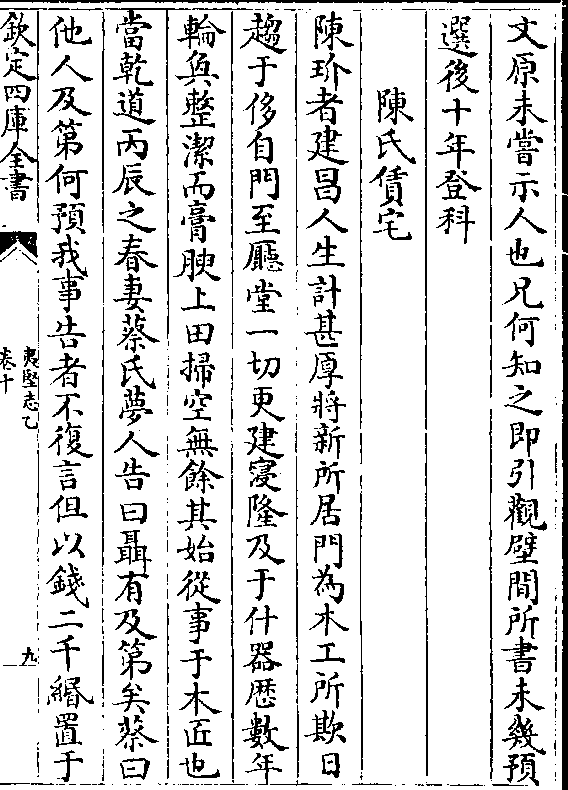 文原未嘗示人也兄何知之即引觀壁間所書未幾預
選後十年登科
陳氏賃宅
陳玠者建昌人生計甚厚將新所居門為木工所欺日
趨于侈自門至廳堂一切更建寖隆及于什器歴數年
輪奐整潔而膏腴上田掃空無餘其始從事于木匠也
當乾道丙辰之春妻蔡氏夢人告曰聶有及第矣蔡曰
他人及第何預我事告者不復言但以錢二千緡置于
欽定四庫全書
夷堅志乙
卷十
九